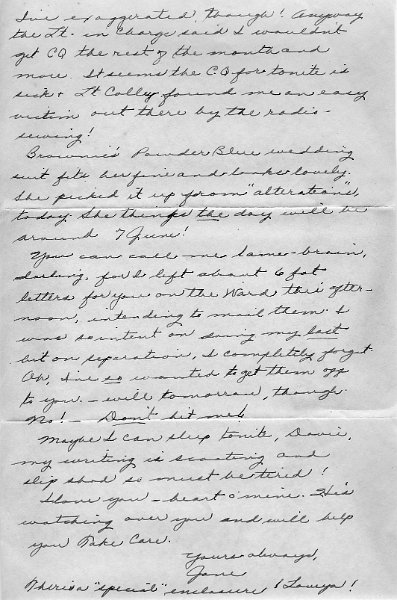 I've exaggerated though! Anyway
the Lt. in Charge said I wouldn't
get CQ the rest of the month and
more. It seems the CQ for tonite is
sick & Lt Colly found me an easy
victim out there by the radio -
sewing!
Brownie's Powder Blue wedding
suit fits her fine and looks lovely.
She picked it up from "alterations"
today. She thinks the day will be
around 7 June!
You can call me lame-brain,
darling, for I left about 6 fat
letters for you on the Ward this after-
noon, intending to mail them. I
was so intent on my last
bit on operation, I completely forgot.
Oh, I've so wanted to get them off
to you. - will tomorrow, though.
No! - Don't hit me!
Maybe I can sleep tonite, Davie,
my writing is scooting and
slip shod so must be tired!
I love you - heart o' mine. He's
watching over you and will help
you Take Care.
Yours always,
Jane
There's a "special" enclosure! Loveya!